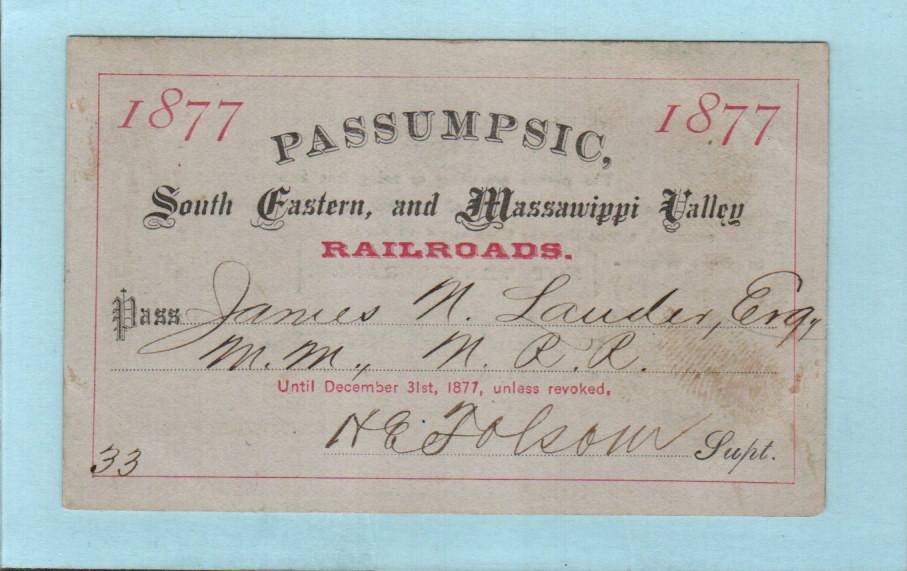 1877 1877
PASSUMPSIC,
South Eastern, and Massawippi Valley
RAILROADS.
Pass James N. Lauder, Esq,
M. M., N. R. R.
Until December 31st, 1877, unless revoked,
H E Folsom Supt.
33